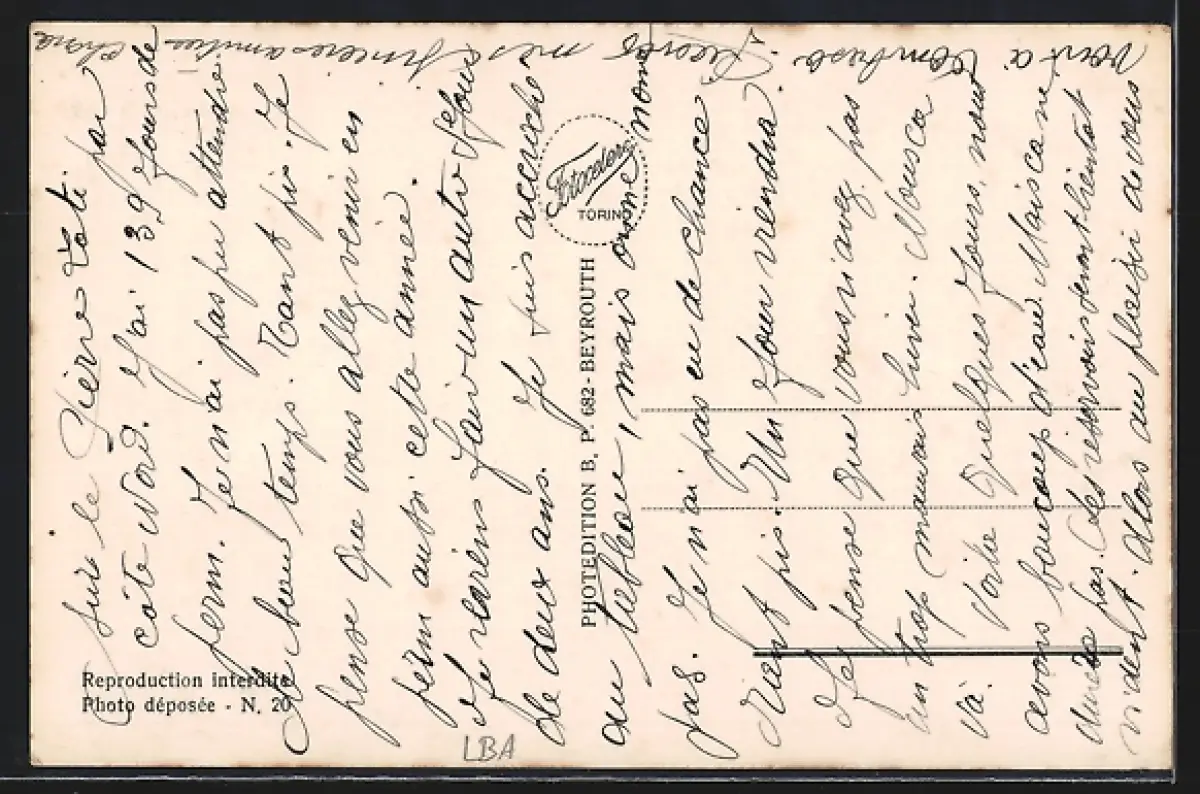 suis le Pierre Toté. par
côte Nord. J'ai 139 jours de
ferm. Je n'ai pas pu attendre
le beau temps. Tant pis. Je
pense que vous allez venir en
aussi cette année.
Je reviens un autre
de deux ans. Je suis accroché
au tableau, mais
pas. Je n'ai pas eu de chance
pis. Un jour viendra.
Je pense que vous n'avez pas
un trop mauvais hiver. Nous ca
va. Voila quelques jours, nous
avons boucoup d'eau. Mais ca ne
durera pas. Les reservois seront bientot
vident. Alors au plaisir de vous
mes sinceres amities
PHOTEDITION B. P. 682 - BEYROUTH
Fotocelere
TORINO
Reproduction interdite
Photo déposée - N. 20
LBA